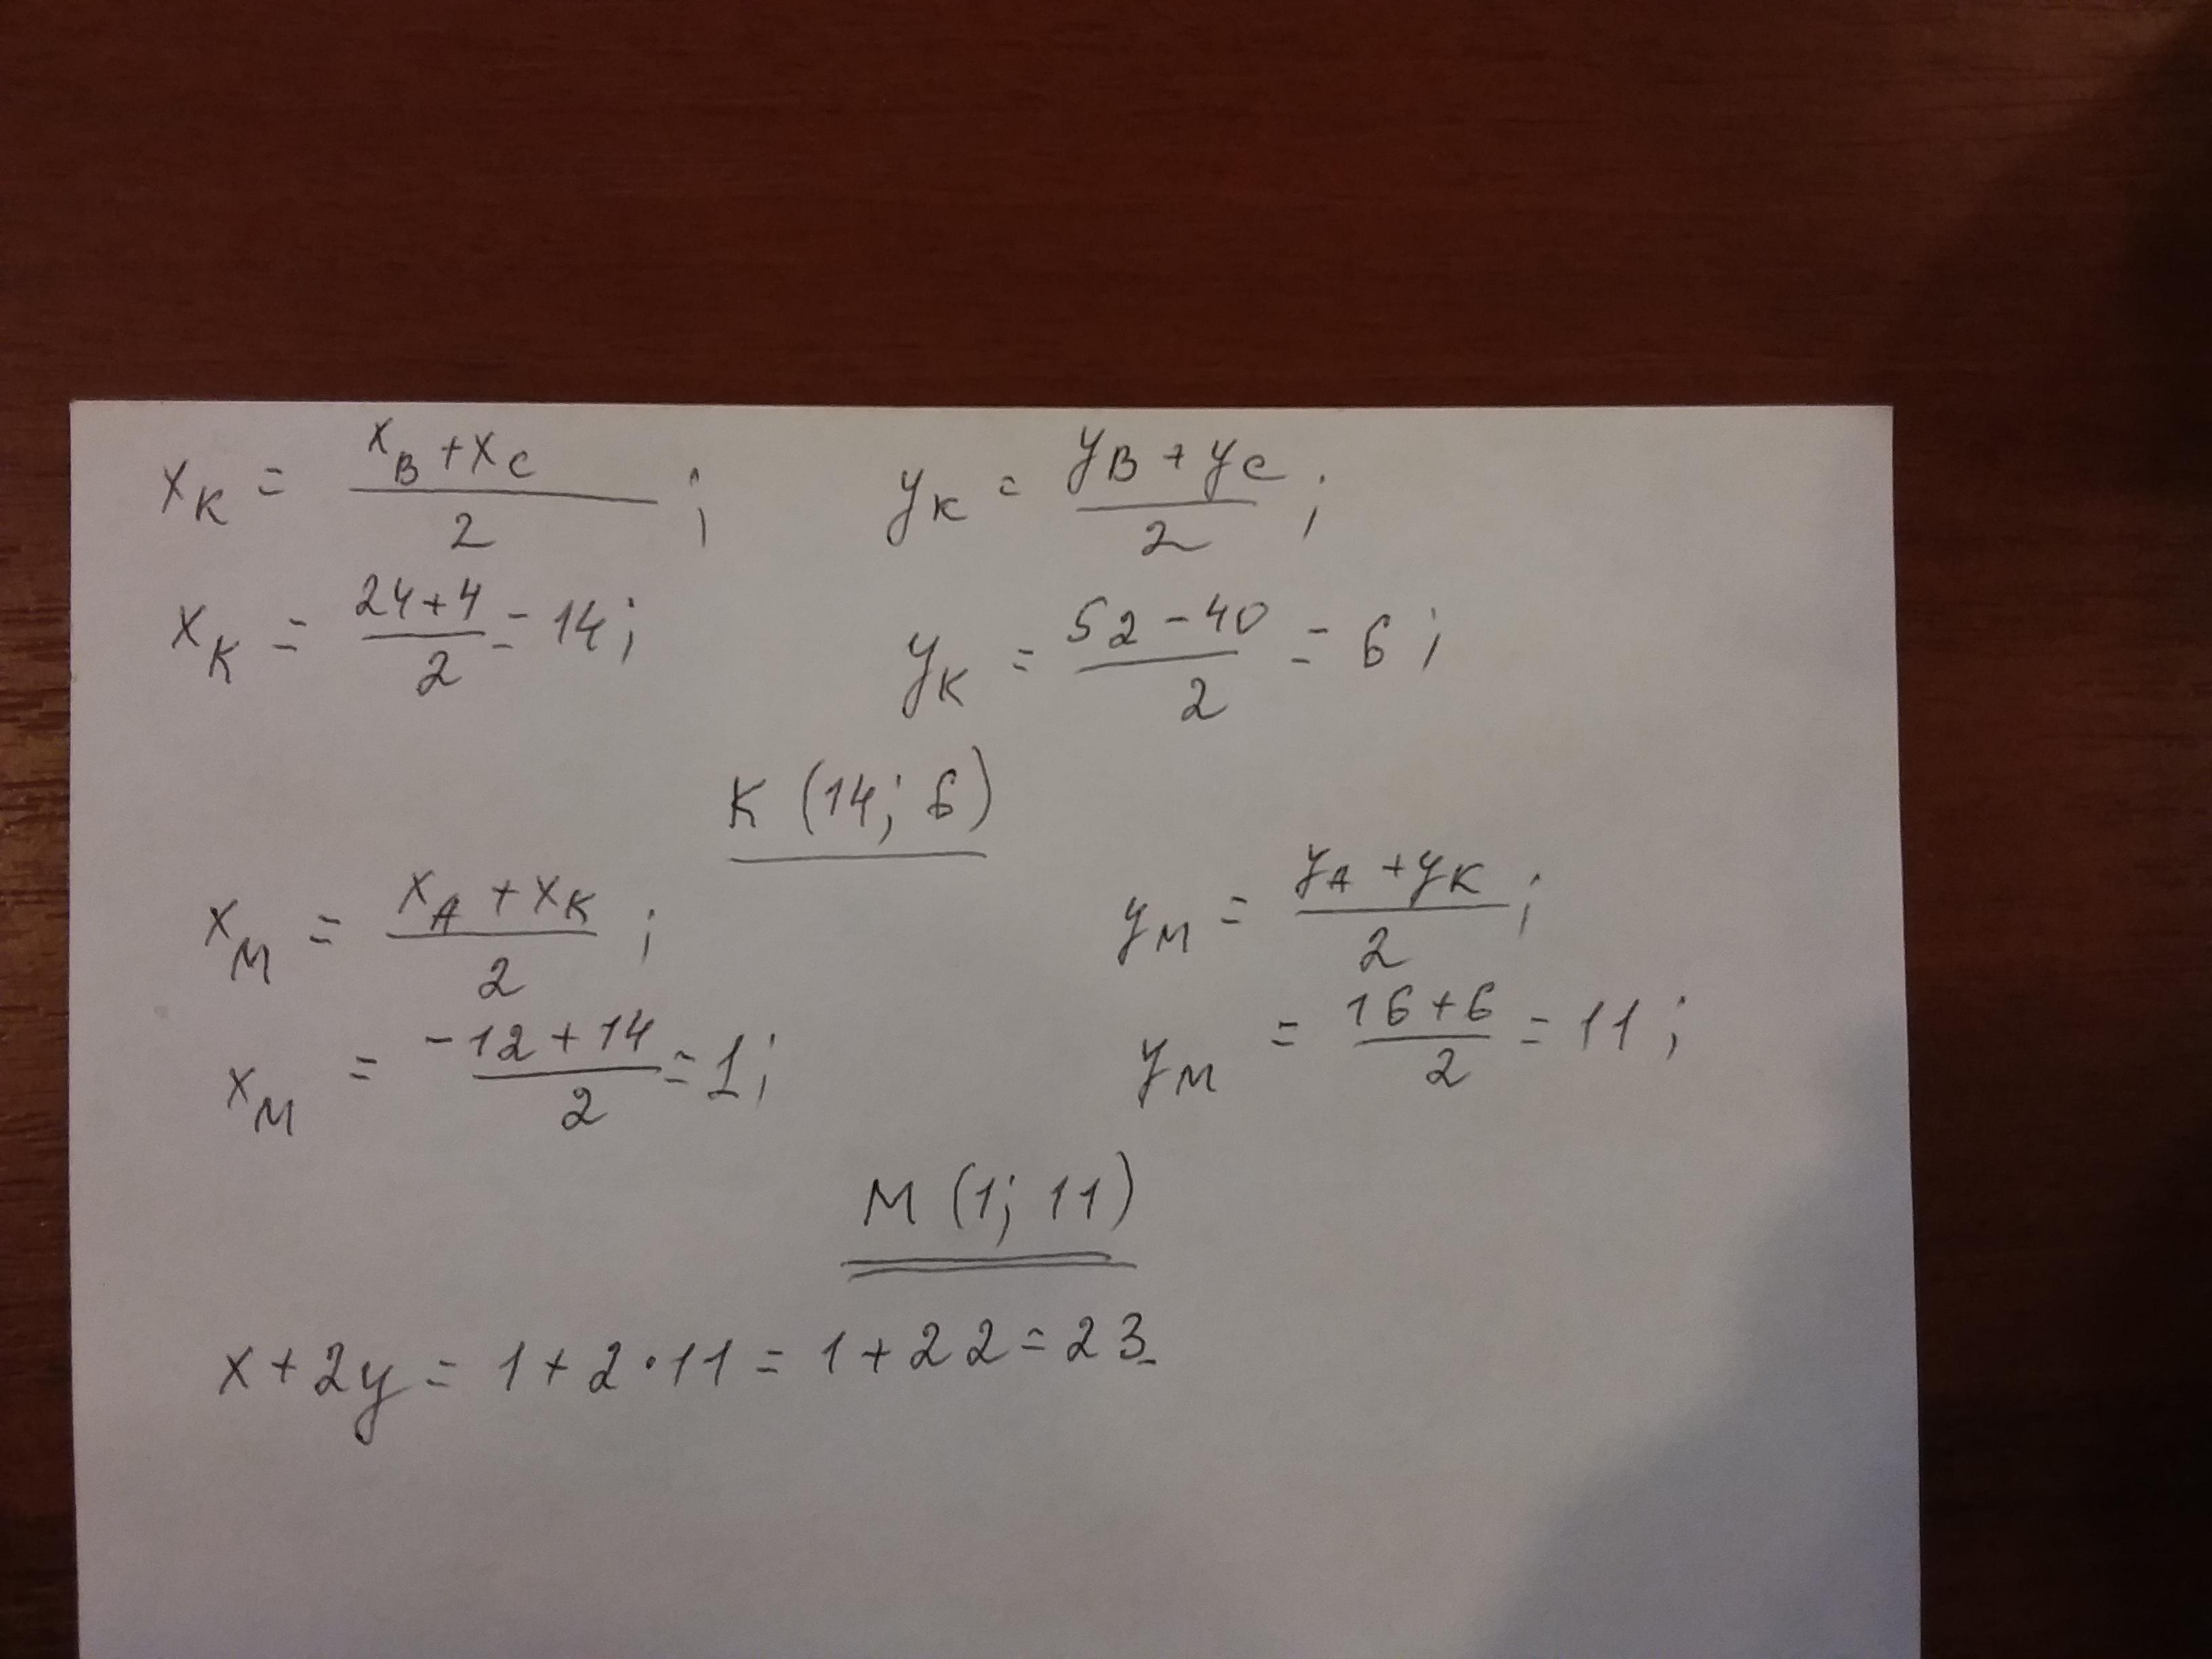 x_K = (x_B + x_C)/2 ; y_K = (y_B + y_C)/2 ;
x_K = (24+4)/2 = 14 ; y_K = (52-40)/2 = 6 ;
K (14; 6)
x_M = (x_A + x_K)/2 ; y_M = (y_A + y_K)/2 ;
x_M = (-12+14)/2 = 1 ; y_M = (16+6)/2 = 11 ;
M (1; 11)
x + 2y = 1 + 2·11 = 1 + 22 = 23